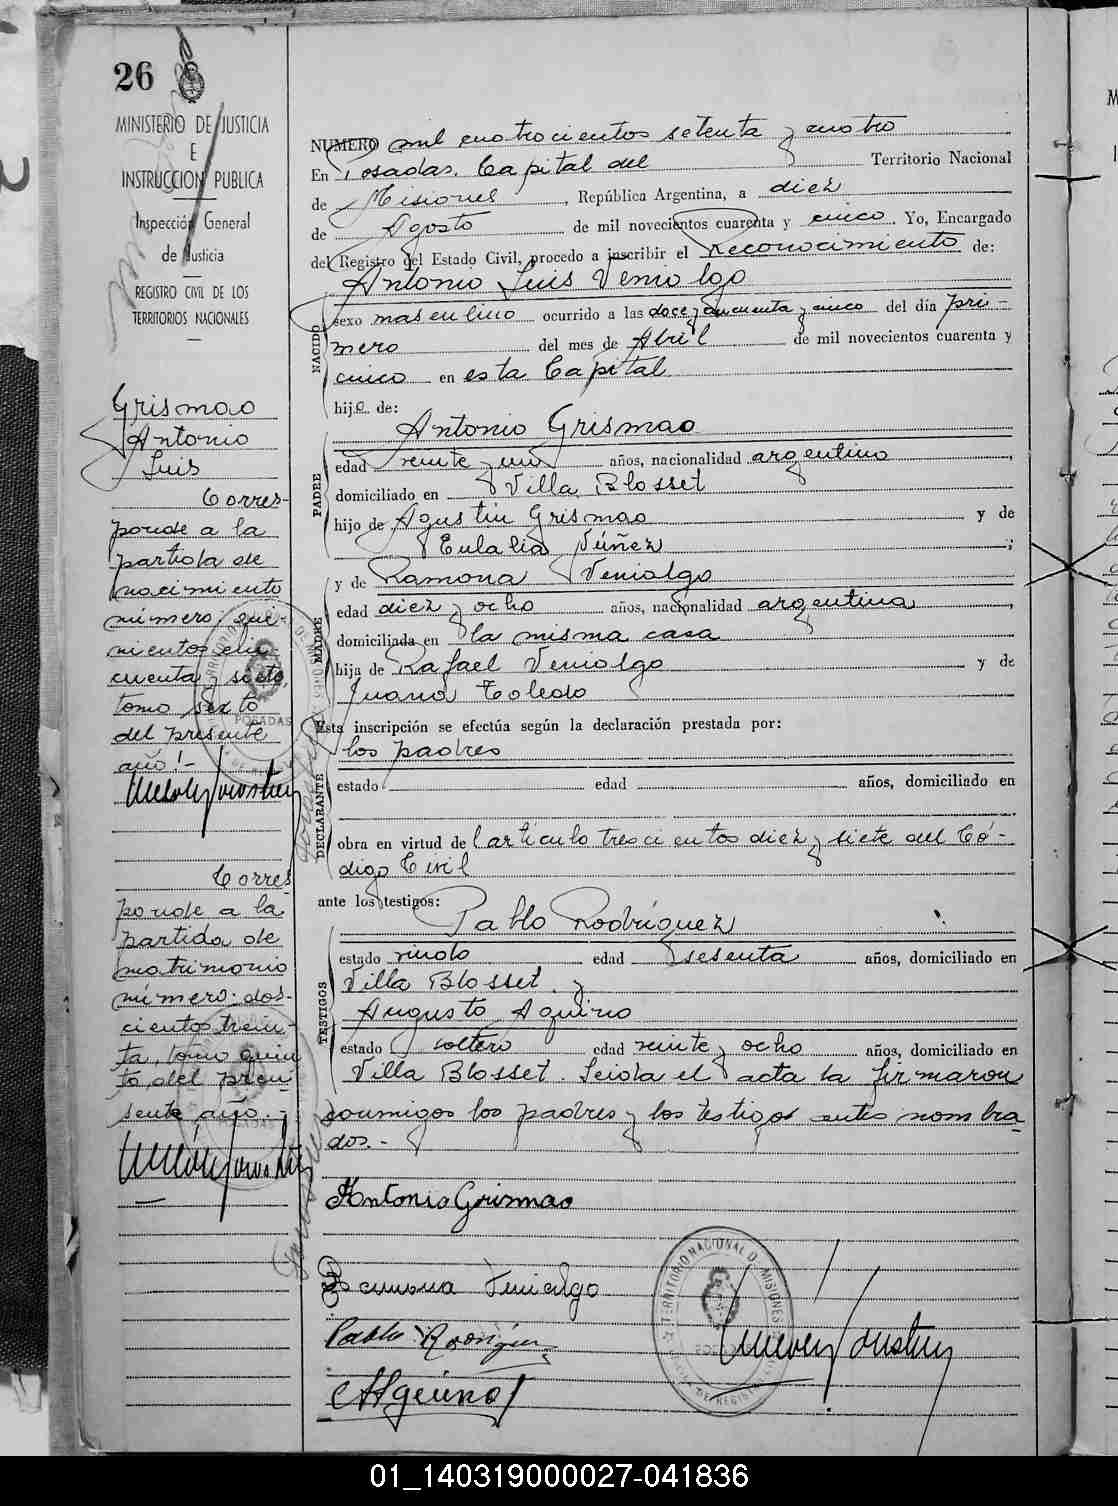 26
MINISTERIO DE JUSTICIA
E
INSTRUCCION PUBLICA
Inspección General
de Justicia
REGISTRO CIVIL DE LOS
TERRITORIOS NACIONALES
Grismao
Antonio
Luis
Corres-
ponde a la
partida de
nacimiento
número: qui-
nientos cin-
cuenta y siete,
tomo sexto
del presente
año!-
Corres
ponde a la
partida de
matrimonio
número: dos-
cientos trein-
ta, tomo quin
to, del pre
sente año.-
NUMERO mil cuatrocientos setenta y cuatro
En Posadas. Capital del Territorio Nacional
de Misiones, República Argentina, a diez
de Agosto de mil novecientos cuarenta y cinco. Yo, Encargado
del Registro del Estado Civil, procedo a inscribir el reconocimiento de:
Antonio Luis Venialgo
NACIDO
sexo masculino ocurrido a las doce y cincuenta y cinco del día pri-
mero del mes de Abril de mil novecientos cuarenta y
cinco en esta Capital
hijo de:
Antonio Grismao
PADRE
edad veinte y un años, nacionalidad argentino,
domiciliado en Villa Blosset
hijo de Agustin Grismao y de
Eulalia Núñez;
MADRE
y de Ramona Venialgo
edad diez y ocho años, nacionalidad argentina,
domiciliada en la misma casa
hija de Rafael Venialgo y de
Juana Toledo
Esta inscripción se efectúa según la declaración prestada por:
los padres
DECLARANTE
estado edad años, domiciliado en
obra en virtud del artículo trescientos diez y siete del Có-
digo Civil
ante los testigos:
Pablo Rodríguez
TESTIGOS
estado viudo edad sesenta años, domiciliado en
Villa Blosset. y
Augusto Aquino
estado soltero edad veinte y ocho años, domiciliado en
Villa Blosset. Leida el acta la firmaron
conmigo los padres y los testigos antes nombra
dos.-
Antonio Grismao
Ramona Venialgo
Pablo Rodríguez
Aquino
TERRITORIO NACIONAL DE MISIONES
POSADAS
01_140319000027-041836